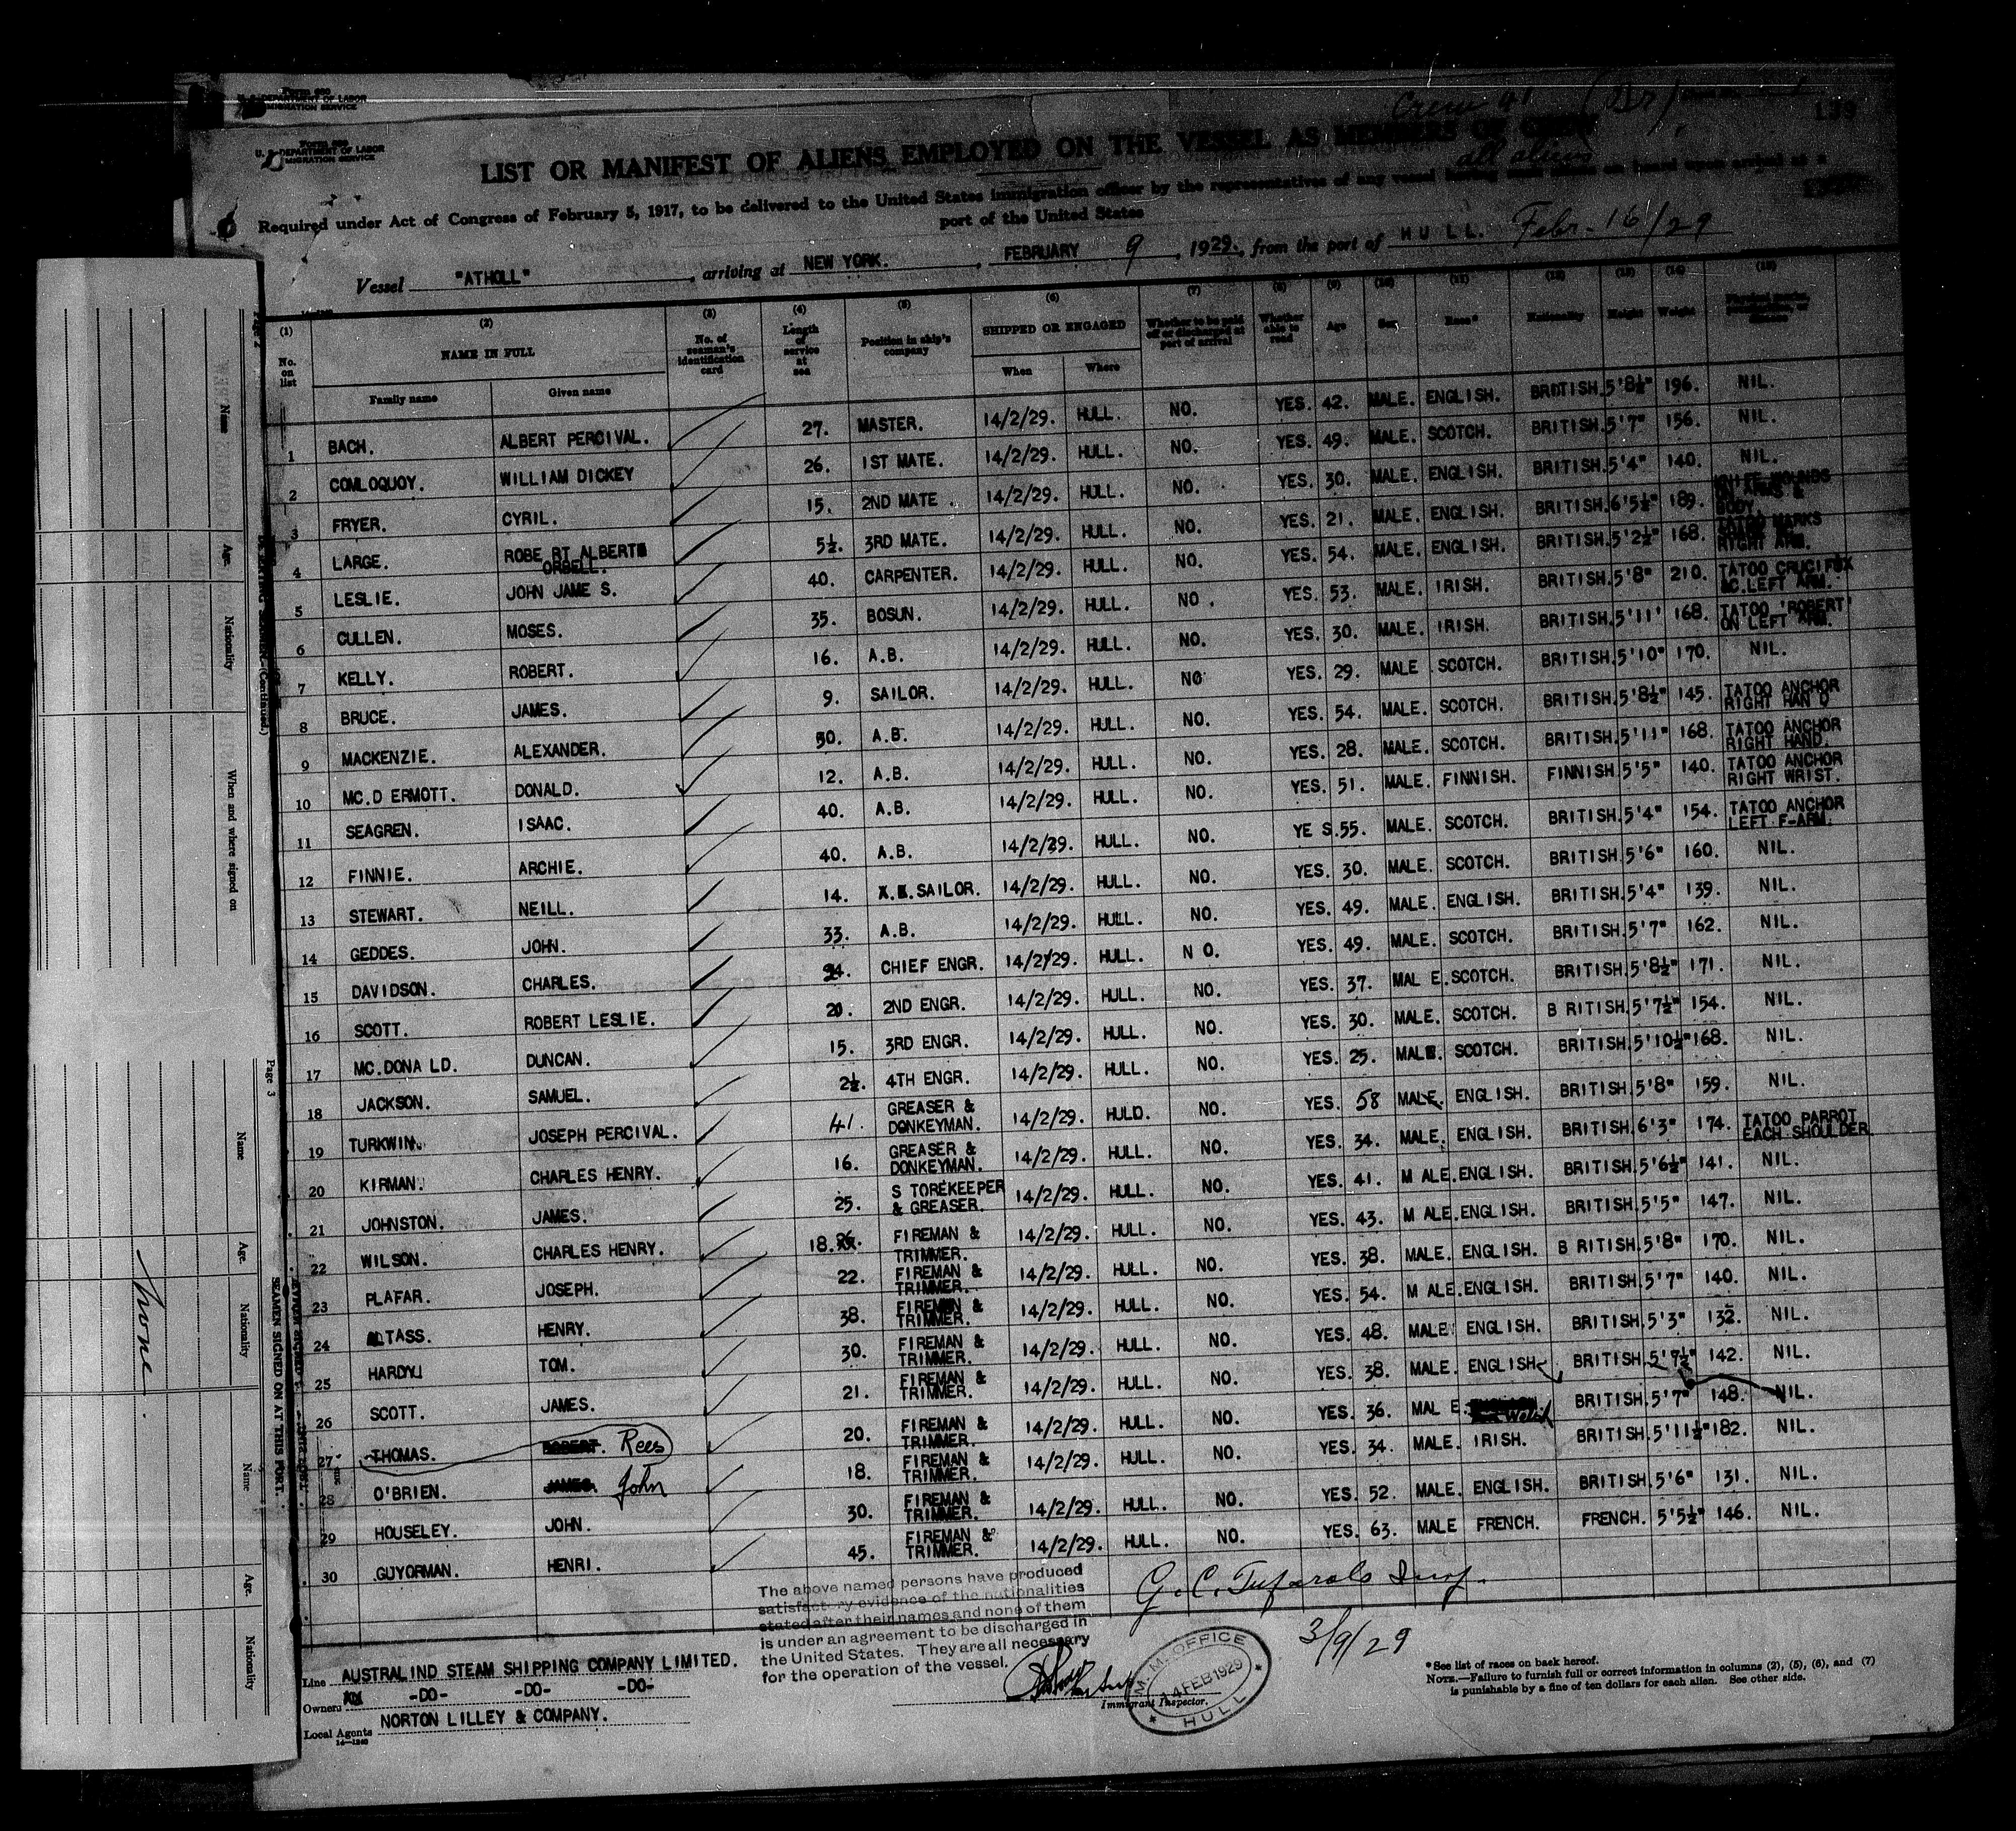 Form 680
U. S. DEPARTMENT OF LABOR
IMMIGRATION SERVICE
Crew 41 (Br)
139
LIST OR MANIFEST OF ALIENS EMPLOYED ON THE VESSEL AS MEMBERS OF CREW
all aliens
Required under Act of Congress of February 5, 1917, to be delivered to the United States immigration officer by the representatives of any vessel having such aliens on board upon arrival at a
port of the United States
Vessel "ATHOLL", arriving at NEW YORK., FEBRUARY 9, 1929., from the port of HULL. Febr. 16/29
(1) (2) (3) (4) (5) (6) (7) (8) (9) (10) (11) (12) (13) (14) (15)
No. on list NAME IN FULL No. of seaman's identification card Length of service at sea Position in ship's company SHIPPED OR ENGAGED Whether to be paid off or discharged at port of arrival Whether able to read Age Sex Race* Nationality Height Weight
Family name Given name When Where
1 BACH. ALBERT PERCIVAL. 27. MASTER. 14/2/29. HULL. NO. YES. 42. MALE. ENGLISH. BRITISH. 5'8½" 196. NIL.
2 COMLOQUOY. WILLIAM DICKEY 26. 1ST MATE. 14/2/29. HULL. NO. YES. 49. MALE. SCOTCH. BRITISH. 5'7" 156. NIL.
3 FRYER. CYRIL. 15. 2ND MATE. 14/2/29. HULL. NO. YES. 30. MALE. ENGLISH. BRITISH. 5'4" 140. NIL.
4 LARGE. ROBE RT ALBERT ORSELL. 5½. 3RD MATE. 14/2/29. HULL. NO. YES. 21. MALE. ENGLISH. BRITISH. 6'5½" 189. KNIFE WOUNDS ON ARMS & BODY.
5 LESLIE. JOHN JAME S. 40. CARPENTER. 14/2/29. HULL. NO. YES. 54. MALE. ENGLISH. BRITISH. 5'2½" 168. TATOO MARKS RIGHT ARM.
6 CULLEN. MOSES. 35. BOSUN. 14/2/29. HULL. NO. YES. 53. MALE. IRISH. BRITISH. 5'8" 210. TATOO CRUCIFIX &C. LEFT ARM.
7 KELLY. ROBERT. 16. A.B. 14/2/29. HULL. NO. YES. 30. MALE. IRISH. BRITISH. 5'11' 168. TATOO 'ROBERT' ON LEFT ARM.
8 BRUCE. JAMES. 9. SAILOR. 14/2/29. HULL. NO YES. 29. MALE SCOTCH. BRITISH. 5'10" 170. NIL.
9 MACKENZIE. ALEXANDER. 30. A.B. 14/2/29. HULL. NO. YES. 54. MALE. SCOTCH. BRITISH. 5'8½" 145. TATOO ANCHOR RIGHT HAN D
10 MC.D ERMOTT. DONALD. 12. A.B. 14/2/29. HULL. NO. YES. 28. MALE. SCOTCH. BRITISH. 5'11" 168. TATOO ANCHOR RIGHT HAND.
11 SEAGREN. ISAAC. 40. A.B. 14/2/29. HULL. NO. YES. 51. MALE. FINNISH. FINNISH. 5'5" 140. TATOO ANCHOR RIGHT WRIST.
12 FINNIE. ARCHIE. 40. A.B. 14/2/29. HULL. NO. YE S. 55. MALE. SCOTCH. BRITISH. 5'4" 154. TATOO ANCHOR LEFT F-ARM.
13 STEWART. NEILL. 14. SAILOR. 14/2/29. HULL. NO. YES. 30. MALE. SCOTCH. BRITISH. 5'6" 160. NIL.
14 GEDDES. JOHN. 33. A.B. 14/2/29. HULL. NO. YES. 49. MALE. ENGLISH. BRITISH. 5'4" 139. NIL.
15 DAVIDSON. CHARLES. 24. CHIEF ENGR. 14/2/29. HULL. N O. YES. 49. MALE. SCOTCH. BRITISH. 5'7" 162. NIL.
16 SCOTT. ROBERT LESLIE. 20. 2ND ENGR. 14/2/29. HULL. NO. YES. 37. MAL E. SCOTCH. BRITISH. 5'8½" 171. NIL.
17 MC.DONA LD. DUNCAN. 15. 3RD ENGR. 14/2/29. HULL. NO. YES. 30. MALE. SCOTCH. B RITISH. 5'7½" 154. NIL.
18 JACKSON. SAMUEL. 2½. 4TH ENGR. 14/2/29. HULL. NO. YES. 25. MALE. SCOTCH. BRITISH. 5'10½" 168. NIL.
19 TURKWIN. JOSEPH PERCIVAL. 41. GREASER & DONKEYMAN. 14/2/29. HULD. NO. YES. 58 MALE. ENGLISH. BRITISH. 5'8" 159. NIL.
20 KIRMAN. CHARLES HENRY. 16. GREASER & DONKEYMAN. 14/2/29. HULL. NO. YES. 34. MALE. ENGLISH. BRITISH. 6'3" 174. TATOO PARROT EACH SHOULDER.
21 JOHNSTON. JAMES. 25. S TOREKEEPER & GREASER. 14/2/29. HULL. NO. YES. 41. M ALE. ENGLISH. BRITISH. 5'6½" 141. NIL.
22 WILSON. CHARLES HENRY. 18. FIREMAN & TRIMMER. 14/2/29. HULL. NO. YES. 43. M ALE. ENGLISH. BRITISH. 5'5" 147. NIL.
23 PLAFAR. JOSEPH. 22. FIREMAN & TRIMMER. 14/2/29. HULL. NO. YES. 38. MALE. ENGLISH. B RITISH. 5'8" 170. NIL.
24 ALTASS. HENRY. 38. FIREMAN & TRIMMER. 14/2/29. HULL. NO. YES. 54. M ALE. ENGLISH. BRITISH. 5'7" 140. NIL.
25 HARDY. TOM. 30. FIREMAN & TRIMMER. 14/2/29. HULL. NO. YES. 48. MALE. ENGLISH. BRITISH. 5'3" 132. NIL.
26 SCOTT. JAMES. 21. FIREMAN & TRIMMER. 14/2/29. HULL. NO. YES. 38. MALE. ENGLISH BRITISH. 5'7½" 142. NIL.
27 THOMAS. ROBERT. Rees 20. FIREMAN & TRIMMER. 14/2/29. HULL. NO. YES. 36. MAL E. Welsh BRITISH. 5'7" 148. NIL.
28 O'BRIEN. JAMES. John 18. FIREMAN & TRIMMER. 14/2/29. HULL. NO. YES. 34. MALE. IRISH. BRITISH. 5'11½" 182. NIL.
29 HOUSELEY. JOHN. 30. FIREMAN & TRIMMER. 14/2/29. HULL. NO. YES. 52. MALE. ENGLISH. BRITISH. 5'6" 131. NIL.
30 GUYORMAN. HENRI. 45. FIREMAN & TRIMMER. 14/2/29. HULL. NO. YES. 63. MALE FRENCH. FRENCH. 5'5½" 146. NIL.
The above named persons have produced
satisfactory evidence of the nationalities
stated after their names and none of them
is under an agreement to be discharged in
the United States. They are all necessary
for the operation of the vessel.
Immigrant Inspector.
3/9/29
M. M. OFFICE
14 FEB 1929
HULL
Line AUSTRALIND STEAM SHIPPING COMPANY LIMITED.
Owners -DO- -DO- -DO-
Local Agents NORTON LILLEY & COMPANY.
14—1240
*See list of races on back hereof.
NOTE.—Failure to furnish full or correct information in columns (2), (5), (6), and (7)
is punishable by a fine of ten dollars for each alien. See other side.
Page 2
Name Age. Nationality When and where signed on
Page 3
SEAMEN SIGNED ON AT THIS PORT.
Name Age. Nationality Name Age. Nationality
None